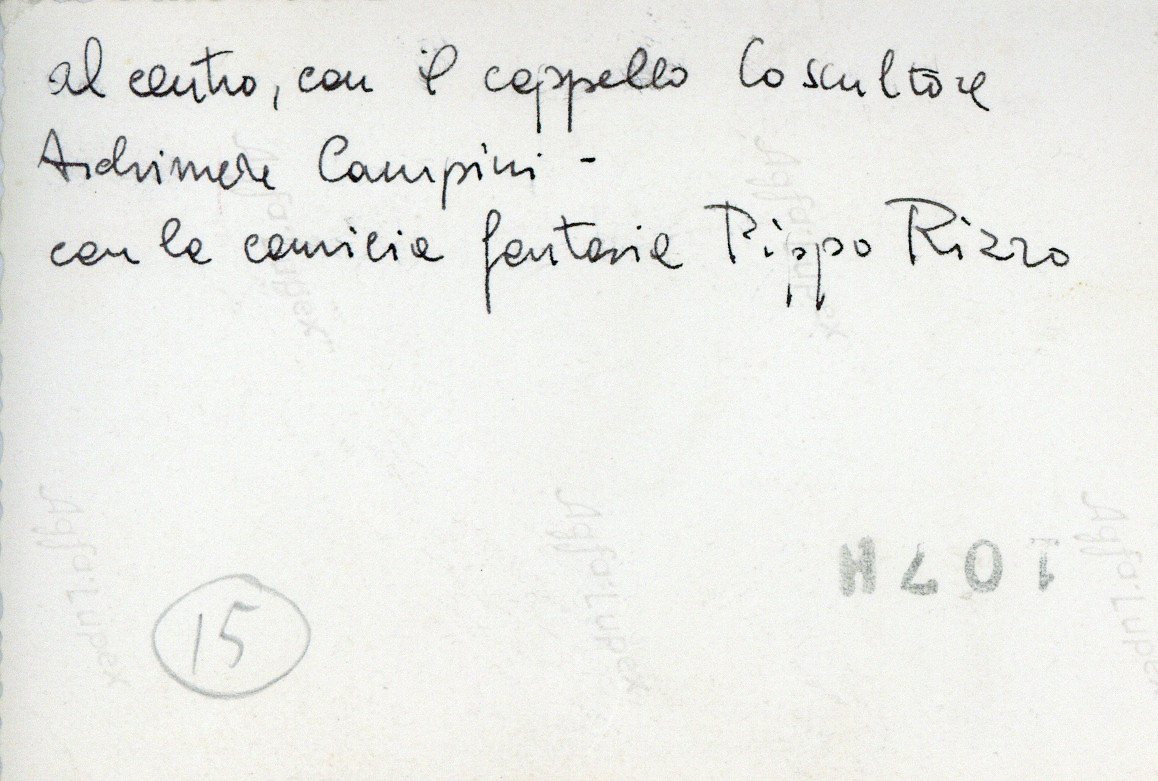 al centro, con il cappello lo scultore
Archimede Campini -
con la camicia fantasia Pippo Rizzo
107H
15
Agfa-Lupex
Agfa-Lupex
Agfa-Lupex
Agfa-Lupex
Agfa-Lupex